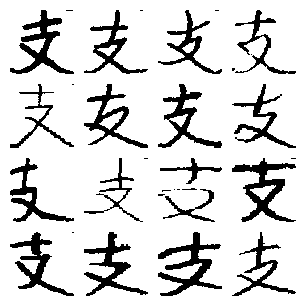 支支支支
支支支支
支支支支
支支支支